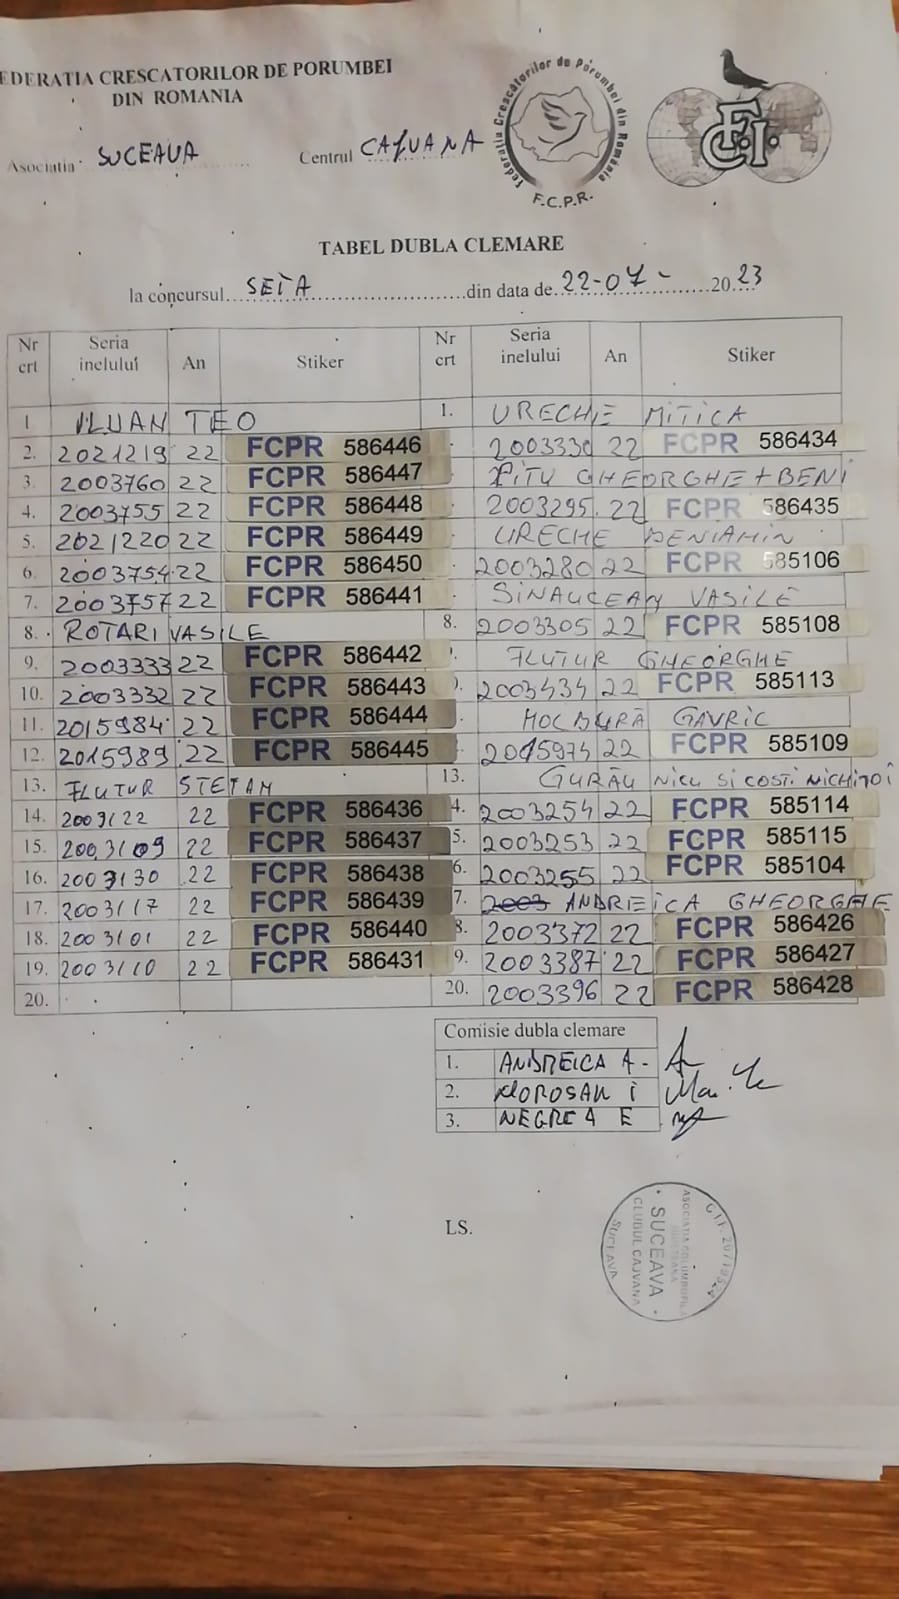 FEDERATIA CRESCATORILOR DE PORUMBEI
DIN ROMANIA
Federatia Crescătorilor de Porumbei din România
F.C.P.R.
FCI
Asociatia SUCEAVA Centrul CAJVANA
TABEL DUBLA CLEMARE
la concursul SETA din data de 22-07- 2023
Nr crt Seria inelului An Stiker Nr crt Seria inelului An Stiker
1 TEO 1. URECHE MITICA
2. 2021219 22 FCPR 586446 2003330 22 FCPR 586434
3. 2003760 22 FCPR 586447 PITU GHEORGHE + BENI
4. 2003755 22 FCPR 586448 2003295 22 FCPR 586435
5. 2021220 22 FCPR 586449 URECHE BENIAMIN
6. 2003754 22 FCPR 586450 2003280 22 FCPR 585106
7. 2003757 22 FCPR 586441 SINAUCEAN VASILE
8. ROTARI VASILE 8. 2003305 22 FCPR 585108
9. 2003333 22 FCPR 586442 FLUTUR GHEORGHE
10. 2003332 22 FCPR 586443 2003434 22 FCPR 585113
11. 2015984 22 FCPR 586444 MOLDURĂ GAVRIC
12. 2015989 22 FCPR 586445 2015974 22 FCPR 585109
13. FLUTUR STEFAN 13. GURĂU NICU SI COSTI NICHITOI
14. 2003122 22 FCPR 586436 4. 2003254 22 FCPR 585114
15. 2003109 22 FCPR 586437 5. 2003253 22 FCPR 585115
16. 2003130 22 FCPR 586438 6. 2003255 22 FCPR 585104
17. 2003117 22 FCPR 586439 7. 2003 ANDREICA GHEORGHE
18. 2003101 22 FCPR 586440 8. 2003372 22 FCPR 586426
19. 2003110 22 FCPR 586431 9. 2003387 22 FCPR 586427
20. 20. 2003396 22 FCPR 586428
Comisie dubla clemare
1. ANDREICA A-
2. MOROSAN I
3. NEGREA E
LS.
ASOCIATIA COLUMBOFILA
SUCEAVA
CLUBUL CAJVANA
SUCEAVA